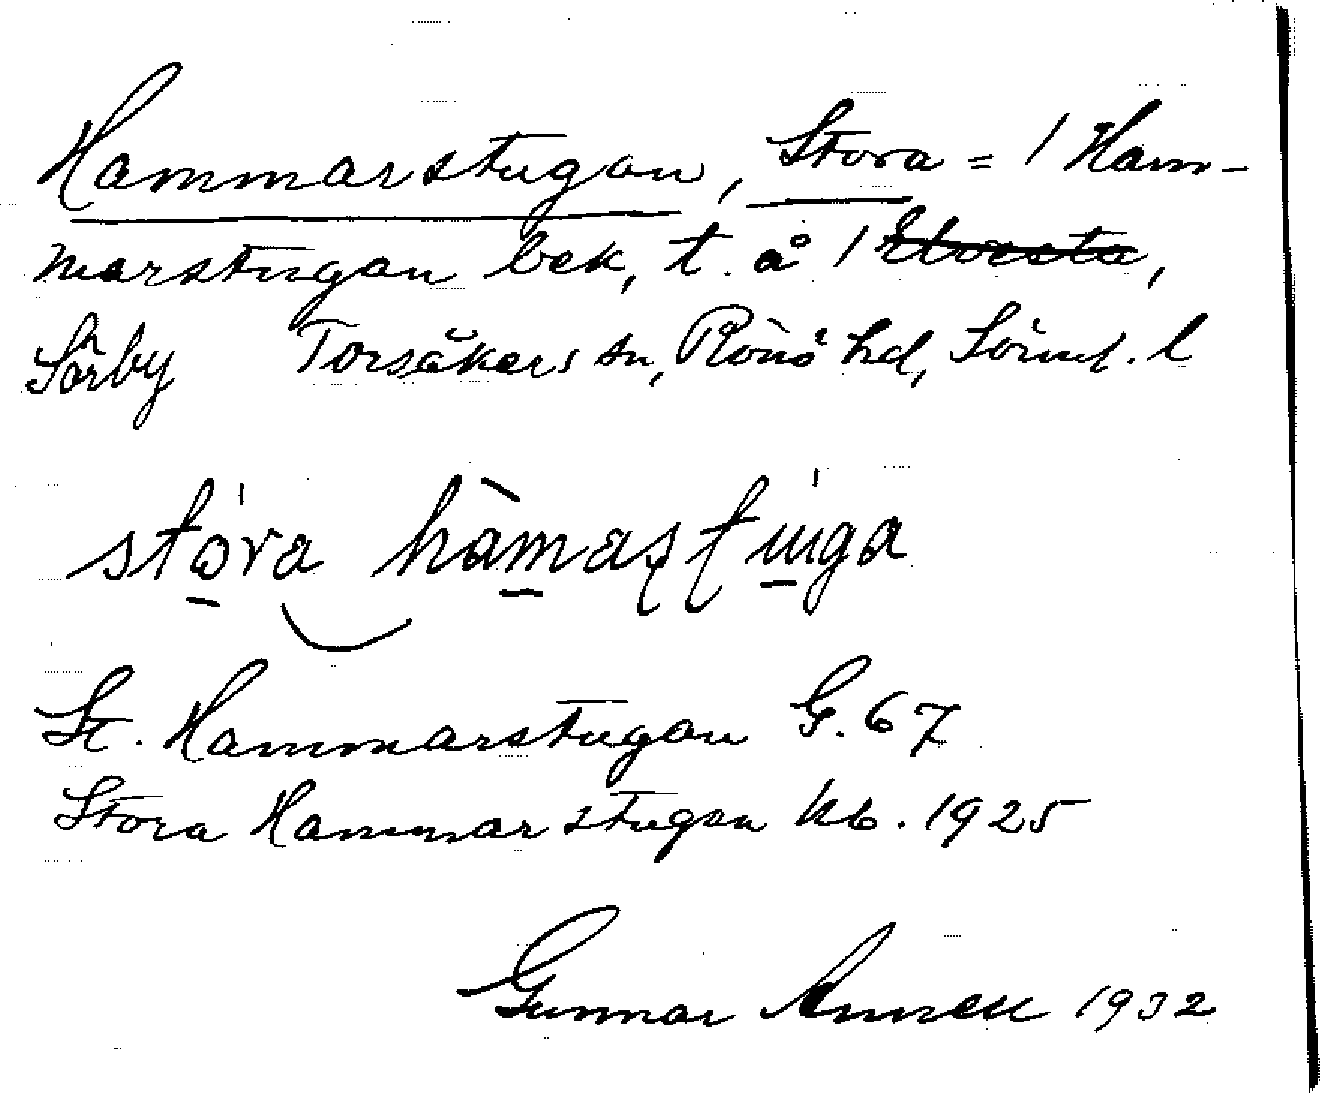 Hammarstugan, Stora = / Ham-
marstugan bek, t. å /
Sörby Torsåkers sn, Rönö hd, Sörml. l
stora hamastuga
St. Hammarstugan G. 67
Stora Hammarstugan kb. 1925
Gunnar Annell 1932